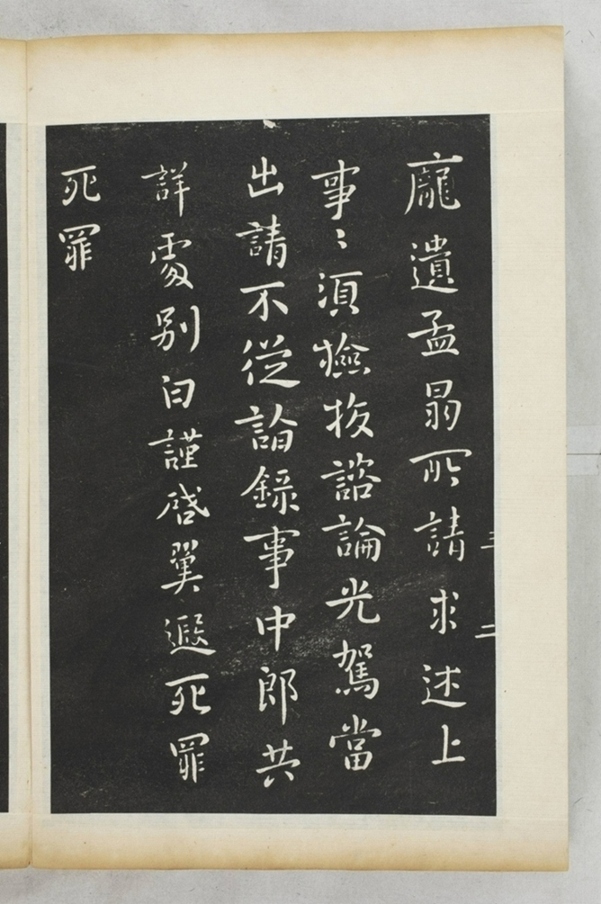 龐遺孟昺所請求述上
事〻須檢校諮論光駕當
出請不從諮錄事中郎共
詳處別白謹啓翼遐死罪
死罪
三 二